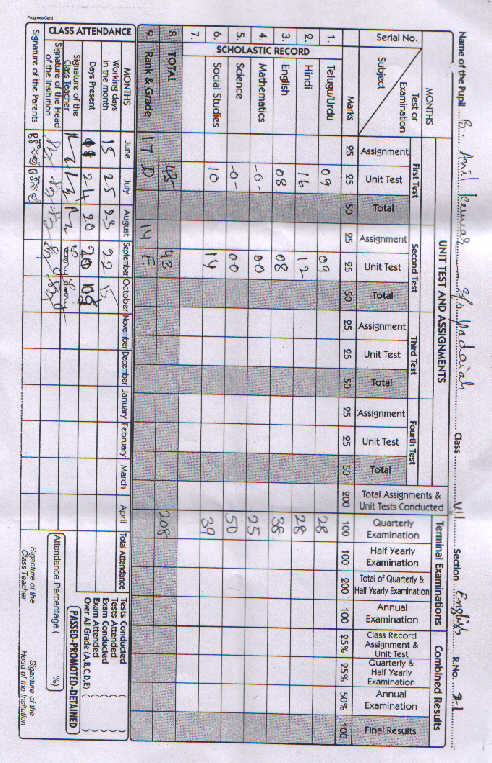 Name of the Pupil Anil Kumar S/o Yadaiah Class VII Section English R.No.
MONTHS
Test or Examination
Subject
Serial No.
UNIT TEST AND ASSIGNMENTS
Terminal Examinations
Combined Results
First Test
Second Test
Third Test
Fourth Test
Assignment Unit Test Total Assignment Unit Test Total Assignment Unit Test Total Assignment Unit Test Total
Total Assignments & Unit Tests Conducted
Quarterly Examination
Half Yearly Examination
Total of Quarterly & Half Yearly Examination
Annual Examination
Class Record Assignment & Unit Test
Quarterly & Half Yearly Examination
Annual Examination
Final Results
Marks 25 25 50 25 25 50 25 25 50 25 25 50 200 100 100 200 100 25% 25% 50% 100
SCHOLASTIC RECORD
1. Telugu/Urdu 09 09 28
2. Hindi 16 12 28
3. English 08 08 38
4. Mathematics -0- 00 25
5. Science -0- 00 50
6. Social Studies 10 14 39
7.
8. TOTAL 43 208
9. Rank & Grade 17 D 14 F
CLASS ATTENDANCE
MONTHS June July August September October November December January February March April Total Attendance
Working days in the month 15 25 23 22
Days Present 24 20 20
Signature of the Class Teacher
Signature of the Head of the Institution
Signature of the Parents
Tests Conducted
Tests Attended
Exam Conducted
Exam Attended
Over All Grade (A,B,C,D,E)
PASSED-PROMOTED-DETAINED
Attendance Percentage ( %)
Signature of the Class Teacher
Signature of the Head of the Institution